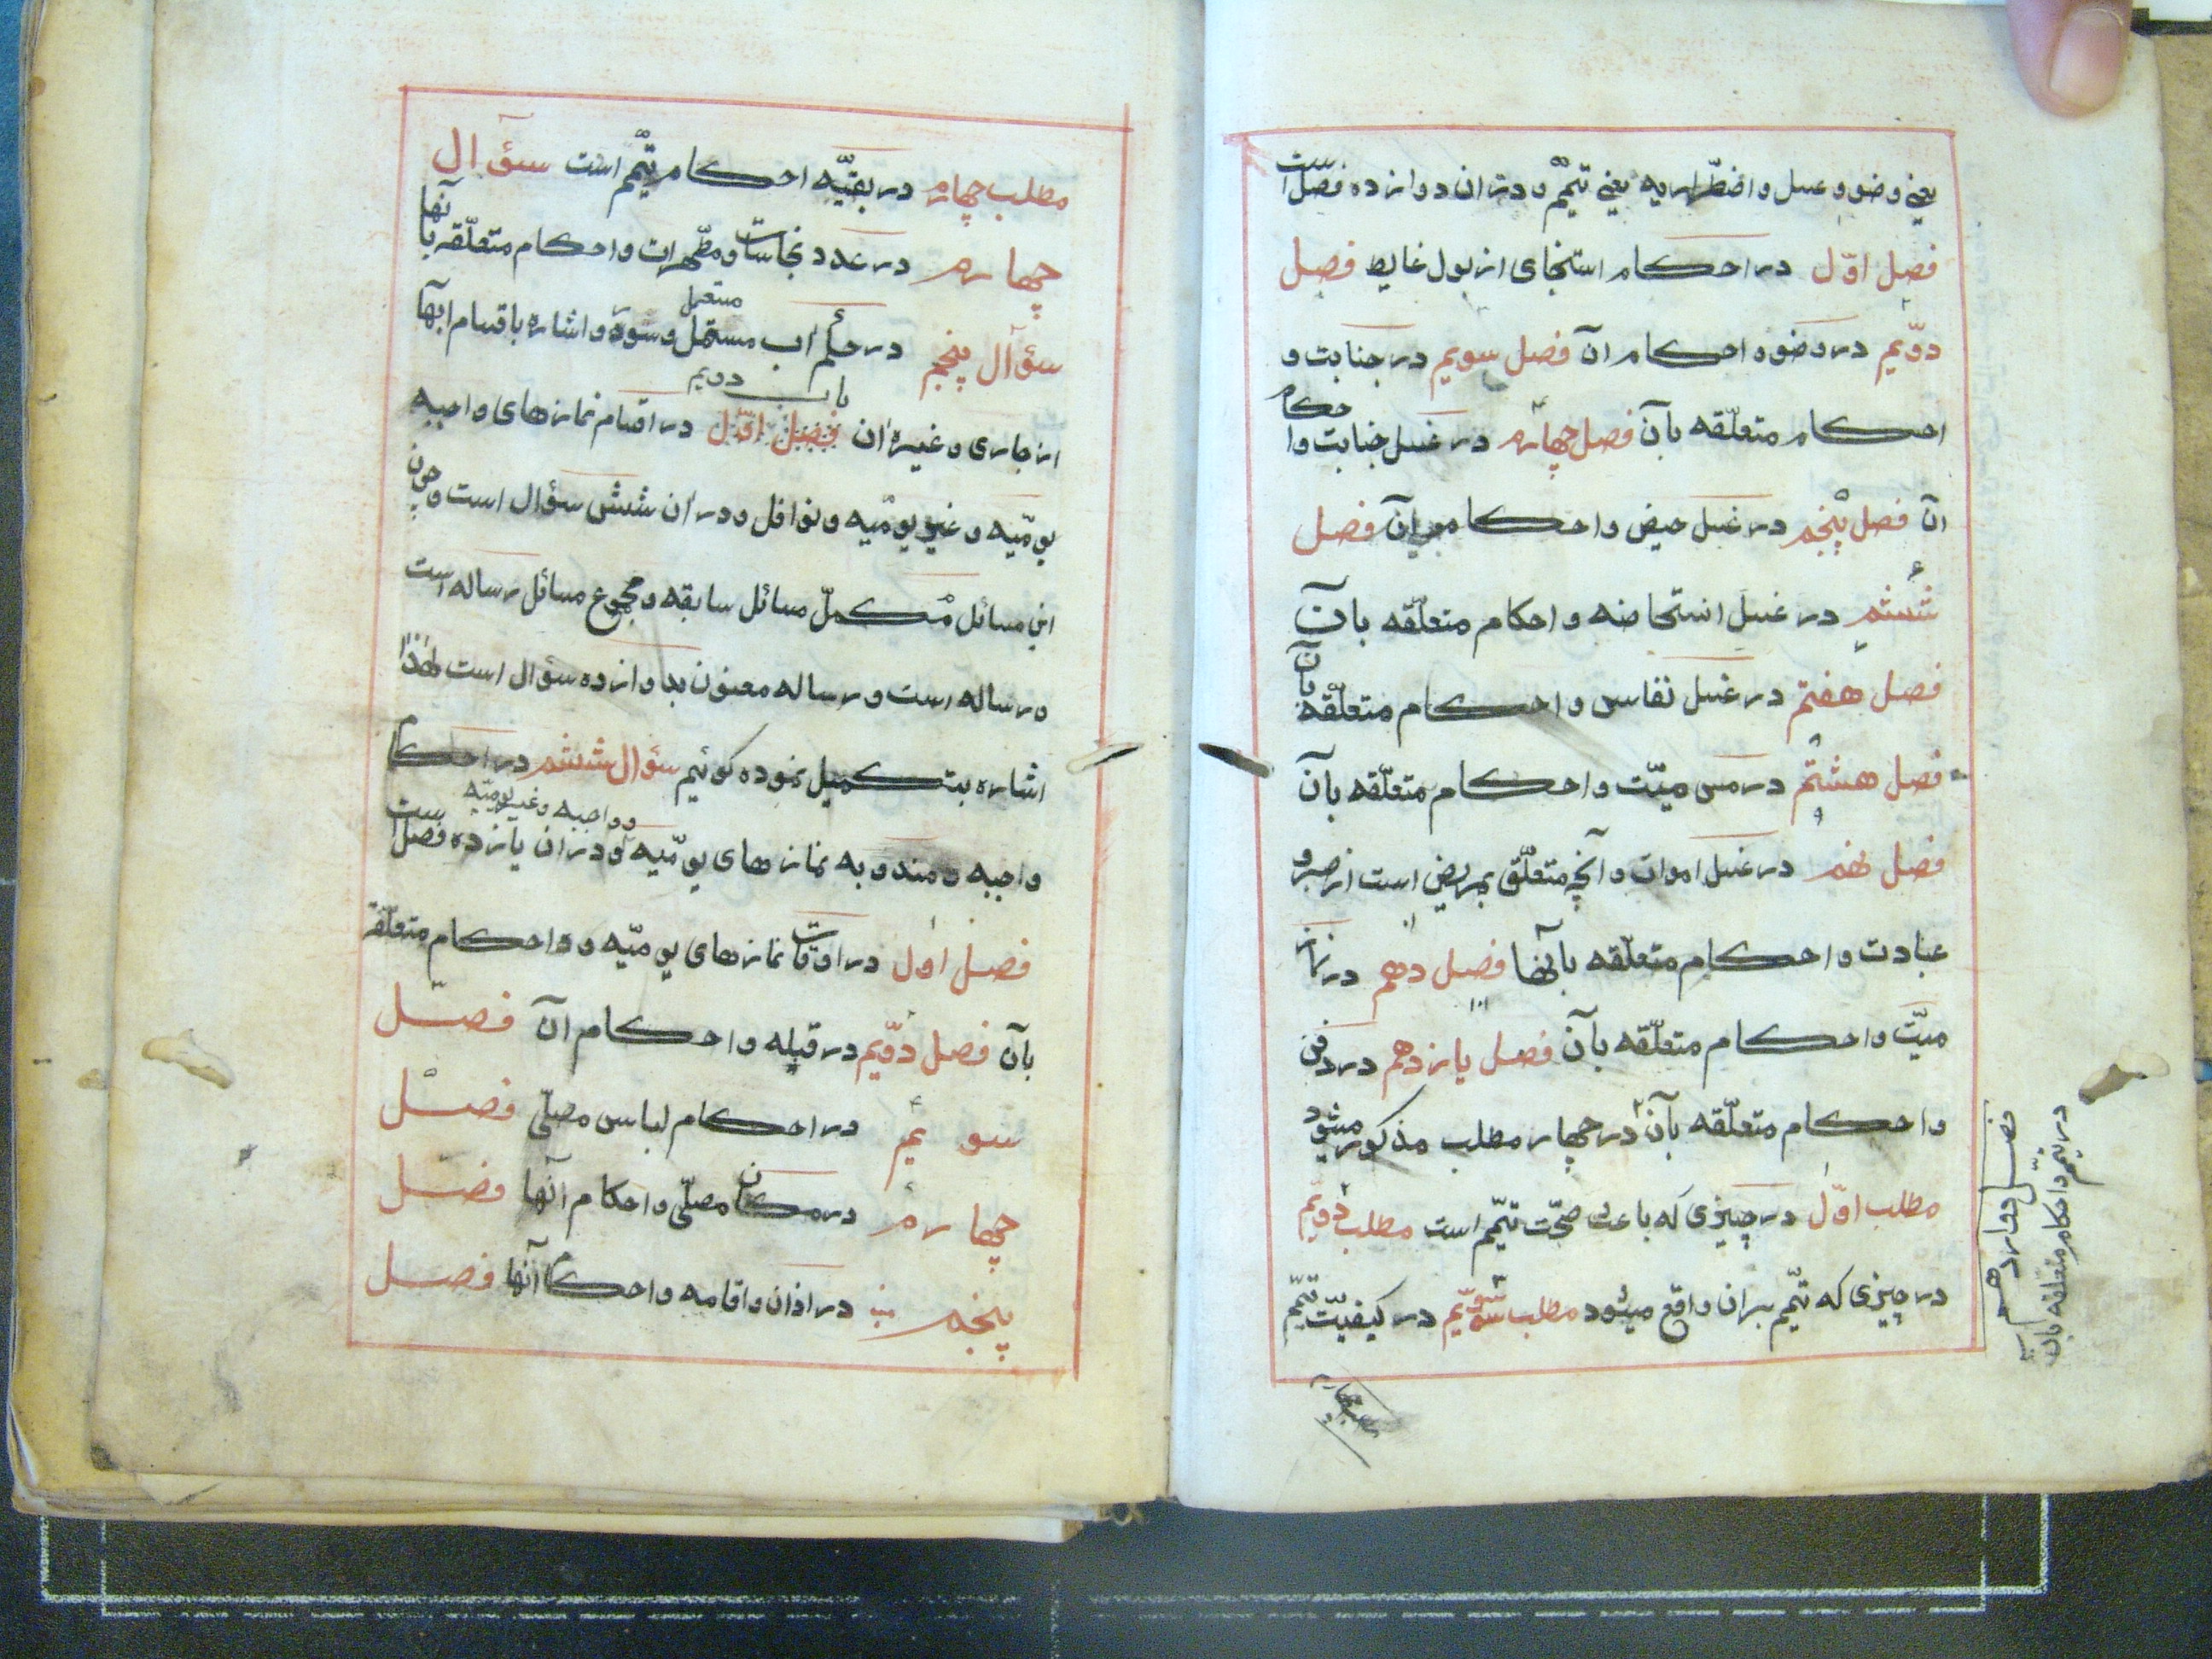 یعنی وضو و غسل و اضطراریه یعنی تیمّم و در ان دوازده فصل است
فصل اوّل در احکام استنجای از بول غایط فصل
دوّیم در وضو و احکام آن فصل سویم در جنابت و
احکام متعلّقه بآن فصل چهارم در غسل جنابت و احکام
آن فصل پنجم در غسل حیض و احکام آن فصل
ششم در غسل استحاضه و احکام متعلّقه بان
فصل هفتم در غسل نفاس و احکام متعلّقه بآن
فصل هشتم در مس میّت و احکام متعلّقه بآن
فصل نهم در غسل اموات و آنچه متعلّق بمریض است از صبر و
عبادت و احکام متعلّقه بآنها فصل دهم در نماز
میّت و احکام متعلّقه بآن فصل یازدهم در دفن
و احکام متعلّقه بآن در چهار مطلب مذکور میشود
مطلب اوّل در چیزی که باعث صحّت تیمّم است مطلب دویّم
در چیزی که تیمّم بران واقع میشود مطلب سویّم در کیفیّت تیمّم
فصل دوازدهم
در تیمم و احکام متعلقه بآن
مطلب چهارم در بقیّه احکام تیمّم است سؤال
چهارم در عدد نجاسات و مطهرات و احکام متعلّقه بآنها
سؤال پنجم در حکم آب مستعمل و سور و اشاره باقسام ابها
مستعمل
باب دویم
از جاری و غیره ان فصل اوّل در اقسام نمازهای واجبه
یومّیه و غیر یومّیه و نوافل و در ان شش سؤال است و چون
این مسائل مکمّل مسائل سابقه و مجموع مسائل رساله است
و رساله است و رساله معنون بدوازده سؤال است لهذا
اشاره بتکمیل نموده کوئیم سؤال ششم در احکام
و واجبه و غیر یومیّه
واجبه و مندوبه نمازهای یومّیه و در ان یازده فصل است
فصل اول در اوقات نمازهای یومیّه و احکام متعلّقه
بآن فصل دوّیم در قبله و احکام آن فصل
سویم در احکام لباس مصلّی فصل
چهارم در مکان مصلّی و احکام آنها فصل
پنجم در اذان و اقامه و احکام آنها فصل